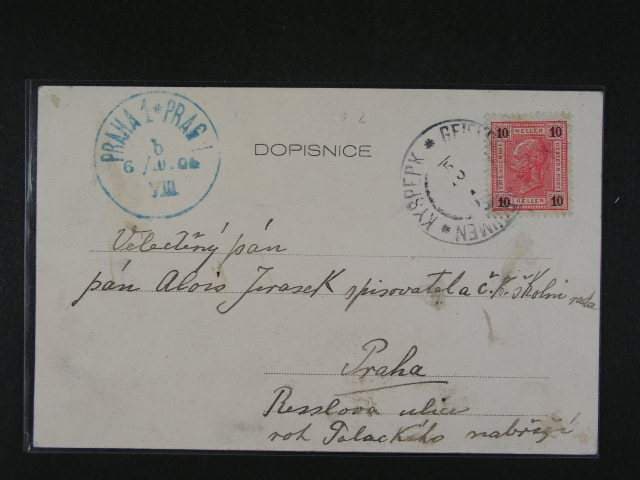 PRAHA 1 * PRAG 1
6
VIII
DOPISNICE
* KYŠPERK *
10 HELLER 10
10 HELLER 10
Velectěný pán
pán Alois Jirasek spisovatel a č. K. školní rada
Praha
Resslova ulice
roh Palackého nabřeží